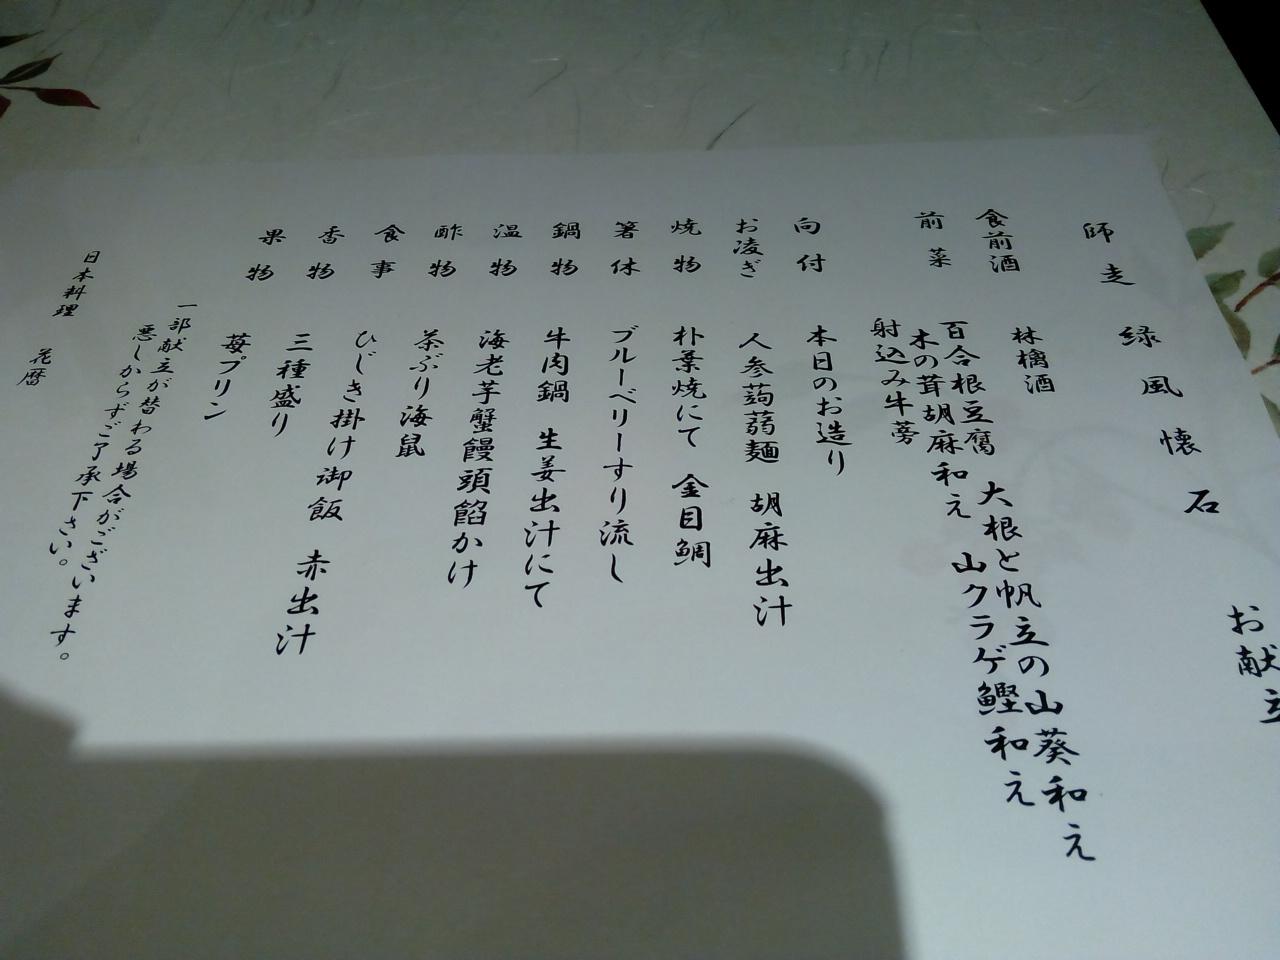 お献立
師走 緑風懐石
食前酒 林檎酒
前菜 百合根豆腐 大根と帆立の山葵和え
木の茸胡麻和え 山クラゲ鰹和え
射込み牛蒡
向付 本日のお造り
お凌ぎ 人参蒟蒻麺 胡麻出汁
焼物 朴葉焼にて 金目鯛
箸休 ブルーベリーすり流し
鍋物 牛肉鍋 生姜出汁にて
温物 海老芋蟹饅頭餡かけ
酢物 茶ぶり海鼠
食事 ひじき掛け御飯 赤出汁
香物 三種盛り
果物 苺プリン
一部献立が替わる場合がございます。
悪しからずご了承下さい。
日本料理 花暦